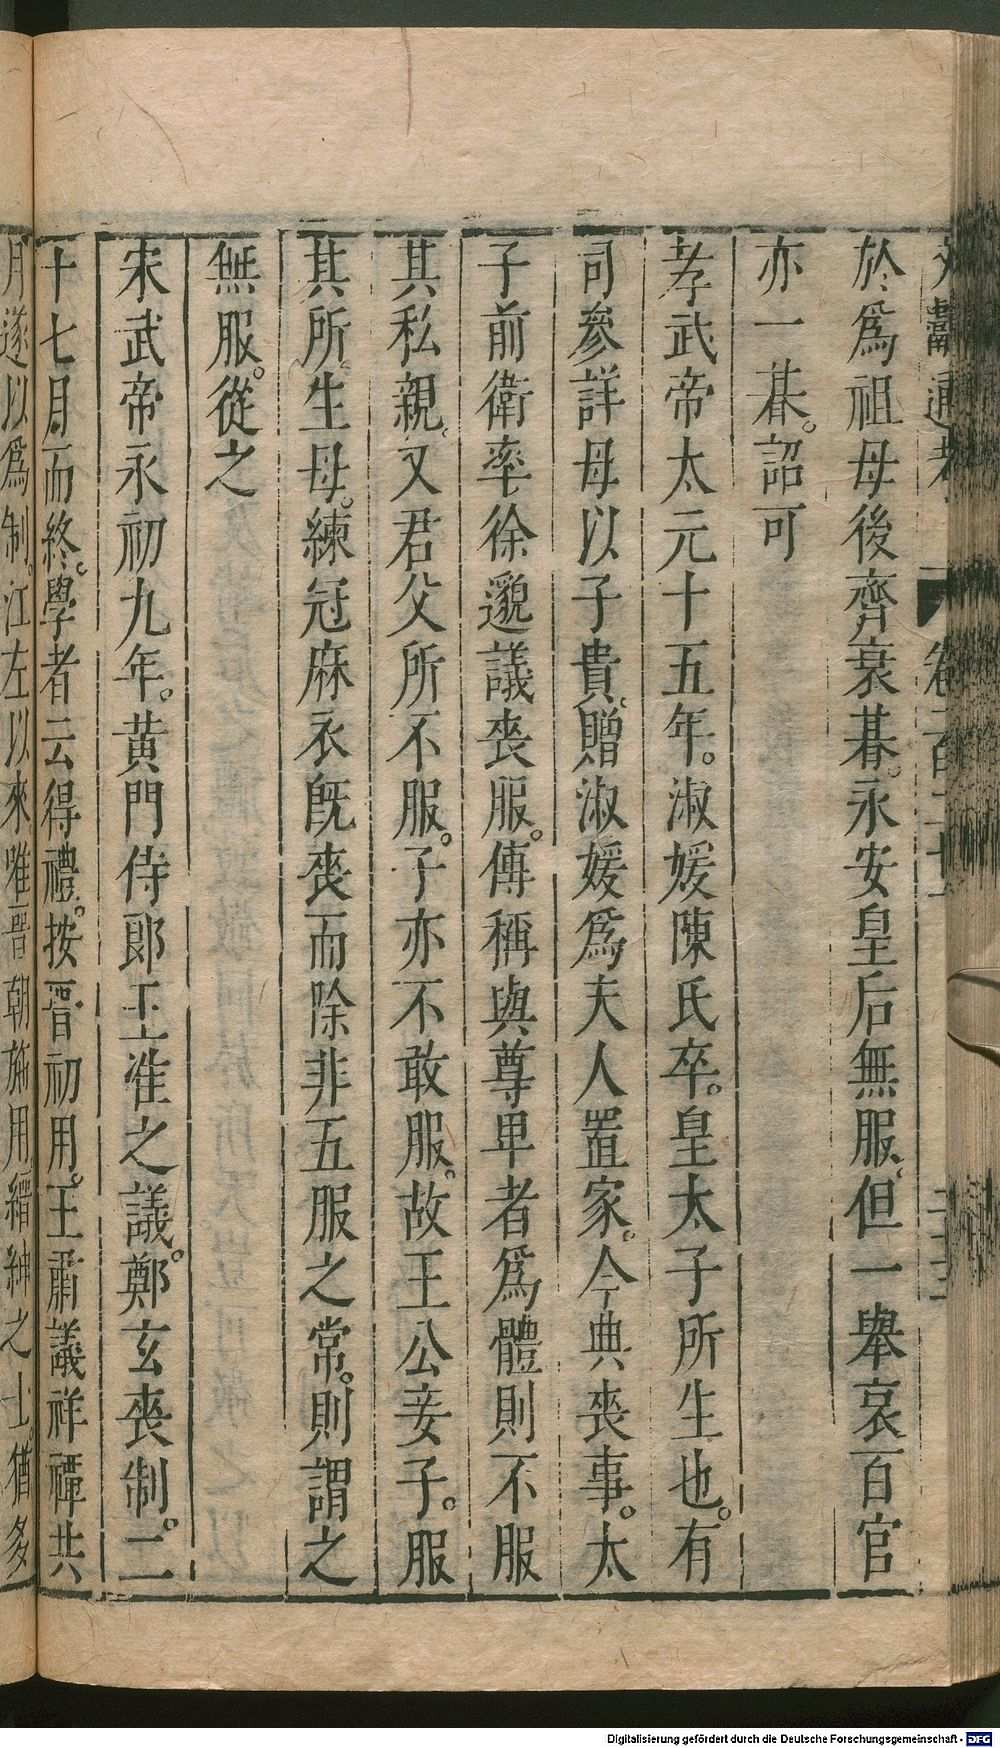 文獻通考 卷一百二十一 二十三
於爲祖母後齊衰朞。永安皇后無服。但一舉哀百官
亦一朞。詔可
孝武帝太元十五年。淑媛陳氏卒。皇太子所生也。有
司參詳母以子貴。贈淑媛爲夫人置家。令典喪事。太
子前衛率徐邈議喪服。傳稱與尊卑者爲體則不服
其私親。又君父所不服。子亦不敢服。故王公妾子。服
其所生母。練冠麻衣旣喪而除非五服之常。則謂之
無服。從之
宋武帝永初九年。黃門侍郎王淮之議。鄭玄喪制。二
十七月而終。學者云得禮。按晉初用。王肅議祥禫共
月遂以爲制。江左以來。唯晉朝施用縉紳之士。猶多
Digitalisierung gefördert durch die Deutsche Forschungsgemeinschaft - DFG